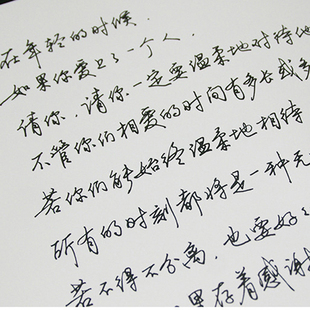 在年轻的时候.
如果你爱上了一个人.
请你.请你一定要温柔地对待他
不管你们相爱的时间有多长或多
若你们能始终温柔地相待
所有的时刻都将是一种无
若不得不分离.也要好
里存着感谢